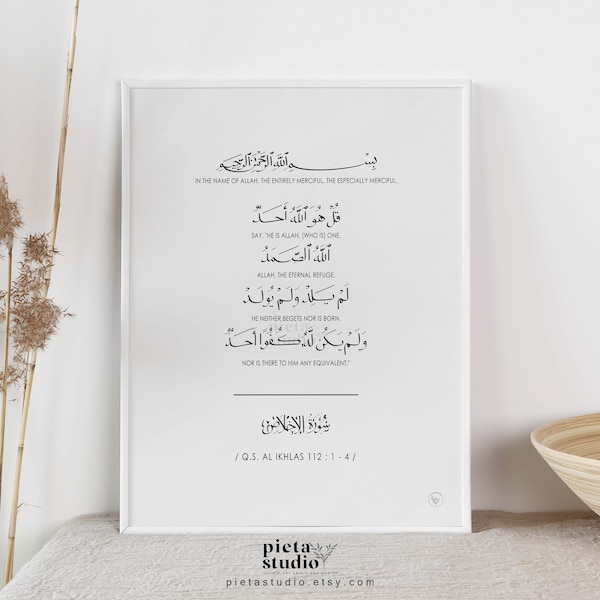 بِسْمِ اللَّهِ الرَّحْمَٰنِ الرَّحِيمِ
IN THE NAME OF ALLAH, THE ENTIRELY MERCIFUL, THE ESPECIALLY MERCIFUL.
قُلْ هُوَ اللَّهُ أَحَدٌ
SAY, "HE IS ALLAH, [WHO IS] ONE,
اللَّهُ الصَّمَدُ
ALLAH, THE ETERNAL REFUGE.
لَمْ يَلِدْ وَلَمْ يُولَدْ
HE NEITHER BEGETS NOR IS BORN,
وَلَمْ يَكُن لَّهُ كُفُوًا أَحَدٌ
NOR IS THERE TO HIM ANY EQUIVALENT."
سُورَةُ الإِخْلَاصِ
/ Q.S. AL IKHLAS 112 : 1 - 4 /
pieta
studio
pietastudio.etsy.com